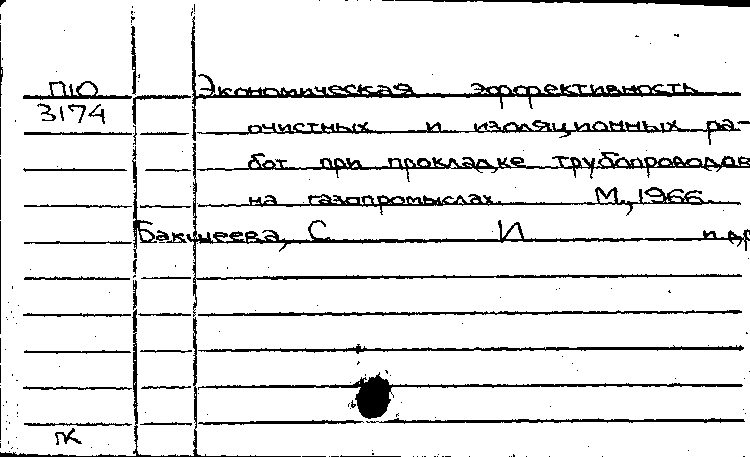 П10 Экономическая эффективность
3174 очистных и изоляционных ра-
бот при прокладке трубопроводов
на газопромыслах. М., 1966.
Бакшеева, С. И и др
ПК